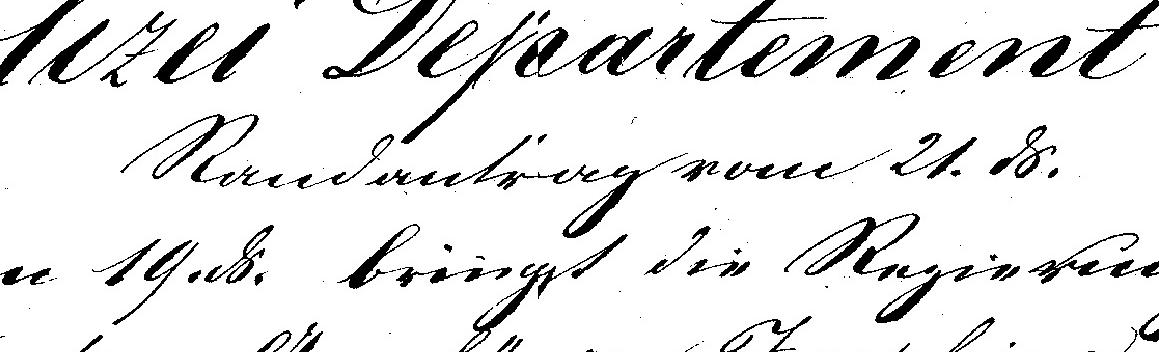 lizei Departement
Randantrag vom 21. ds.
n 19. ds. bringt die Regierun